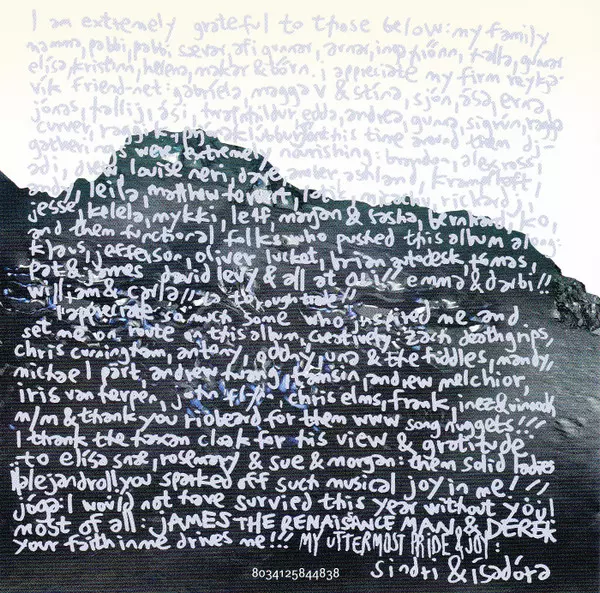 I am extremely grateful to those below: my family
mamma, pabbi, pabbi sevar, afi gunnar, arnar, inga hrönn, halla, gunnar
elísa, kristinn, helena, makar & börn. i appreciate my firm reykja-
vík friend-net: gabriela, magga v & stína, sjón, ása, erna,
jónas, kallij, ósi, edda, andrea, gunna, sigrún, ragga
curver!! this time around them di-
gatherings were extremely nourishing: brandon, alex ross,
louise neri, dave ashland, krampfhaft,
leila, matthew herbert, richard j,
jesse, kelela, mykki, leif, marjan & sasha, bernhard, ko,
and them functional folks who pushed this album along:
klaus, jefferson, oliver lucket, brian autodesk, tomas,
pat & james david levy & all at emma & darbi!!
william & carla!! rough trade!!
i appreciate so much some who inspired me and
set me on route on this album, creatively: zach deathgrips,
chris cunningham, antony, oddny, una & the fiddles, mandy,
michael part, andrew huang, tamsin, andrew melchior,
iris van herpen, chris elms, frank, inez & vinoodh
m/m & thank you riobeard for them www song nuggets!!!
I thank the haxan cloak for his view & gratitude
to elísa snae, rosemary & sue & morgan: them solid ladies
alejandro!! you sparked off such musical joy in me!!
jóga: I would not have survied this year without you!
most of all: JAMES THE RENAISANCE MAN & DEREK
your faith in me drives me!!! MY UTTERMOST PRIDE & JOY:
sindri & ísadóra
8034125844838